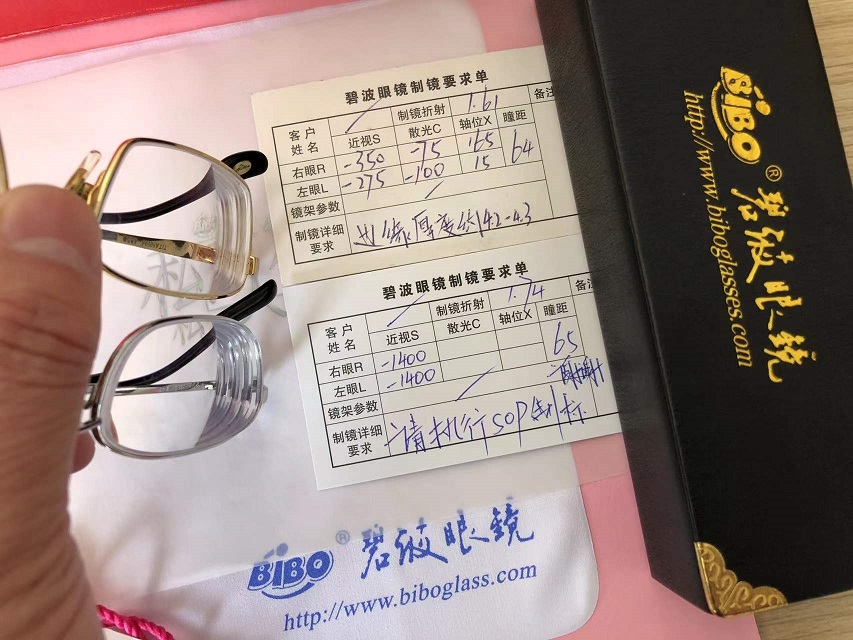 碧波眼镜制镜要求单
客户姓名 制镜折射 1.61 备注
近视S 散光C 轴位X 瞳距
右眼R -350 -75 165 64
左眼L -275 -100 15
镜架参数
制镜详细要求 边缘厚度约4.2-4.3
碧波眼镜制镜要求单
客户姓名 制镜折射 1.74 备注
近视S 散光C 轴位X 瞳距
右眼R -1400 65
左眼L -1400 谢谢
镜架参数
制镜详细要求 请执行SOP制标
BIBO® 碧波眼镜
http://www.biboglasses.com
BIBO® 碧波眼镜
http://www.biboglass.com